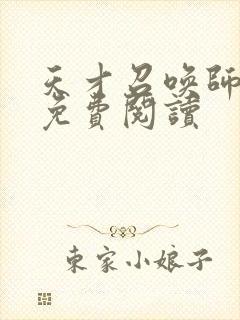 天才召喚師
免費閱讀
東家小娘子